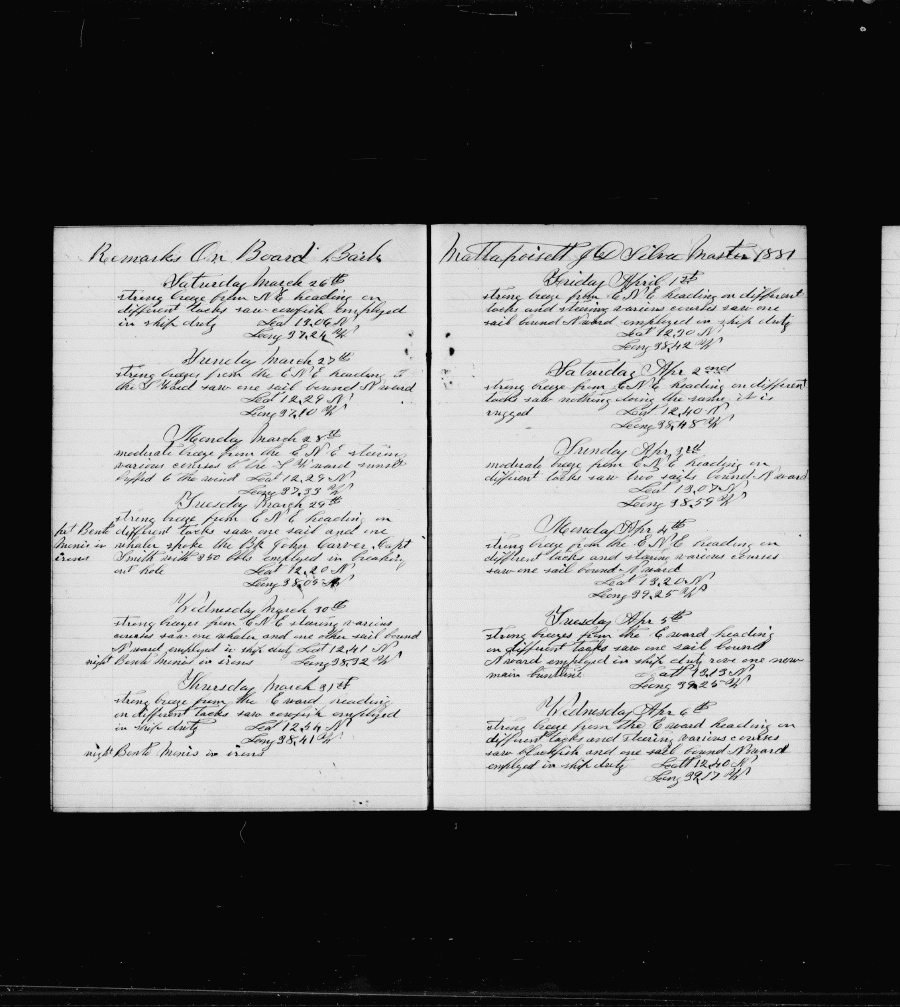 Remarks On Board Bark
Saturday March 26th
strong breeze from N E heading on
different tacks saw cowfish employed
in ship duty Lat 13,06 N
Long 37,24 W
Sunday March 27th
strong breezes from the E N E heading to
the S Ward saw one sail bound N ward
Lat 12,29 N
Long 37,10 W
Monday March 28th
moderate breeze from the E N E steering
various courses to the S W ward sunset
luffed to the wind Lat 12,29 N
Long 37,33 W
Tuesday March 29th
strong breeze from E N E heading on
put Bento different tacks saw one sail and one
Menis in whaler spoke the Bk John Carver Capt
irons Smith with 350 bbls employed in breaking
out hole Lat 12,20 N
Long 38,05 W
Wednesday March 30th
strong breezes from E N E steering various
courses saw one whaler and one other sail bound
N ward employed in ship duty Lat 12,41 N
night Bento Menis in irons Long 38,32 W
Thursday March 31st
strong breeze from the E ward heading
on different tacks saw cowfish employed
in ship duty Lat 12,34 N
Long 38,41 W
night Bento Menis in irons
Mattapoisett J Silva Master 1881
Friday April 1st
strong breeze from E N E heading on different
tacks and steering various courses saw one
sail bound N ward employed in ship duty
Lat 12,30 N
Long 38,42 W
Saturday Apr 2nd
strong breeze from E N E heading on different
tacks saw nothing doing the same it is
rugged Lat 12,40 N
Long 38,48 W
Sunday Apr 3rd
moderate breeze from E N E heading on
different tacks saw two sails bound N ward
Lat 13,07 N
Long 38,59 W
Monday Apr 4th
strong breeze from the E N E heading on
different tacks and stering various courses
saw one sail bound N ward
Lat 13,20 N
Long 39,25 W
Tuesday Apr 5th
strong breezes from the E ward heading
on different tacks saw one sail bound
N ward employed in ship duty rove one new
main buntline Latt 13,13 N
Long 39,25 W
Wednesday Apr 6th
strong breeze from the E ward heading on
different tacks and steering various courses
saw blackfish and one sail bound N ward
employed in ship duty Latt 12,40 N
Long 39,17 W